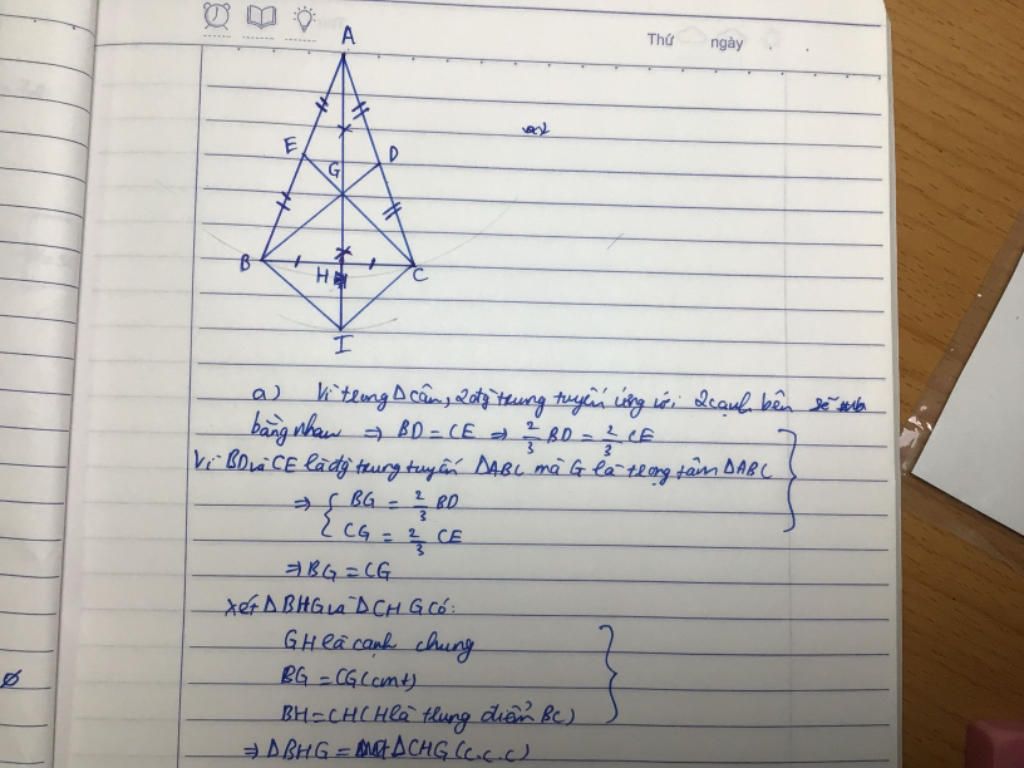 Thứ ngày
A
E D
G
B H C
I
a) Vì trong Δ cân, 2 đg trung tuyến ứng với 2 cạnh bên sẽ
bằng nhau ⇒ BD = CE ⇒ 2/3 BD = 2/3 CE
Vì BD và CE là đg trung tuyến ΔABC mà G là trọng tâm ΔABC
⇒ { BG = 2/3 BD
CG = 2/3 CE
⇒ BG = CG
Xét ΔBHG và ΔCHG có:
GH là cạnh chung
BG = CG (cmt)
BH = CH (H là trung điểm BC)
⇒ ΔBHG = ΔCHG (c.c.c)